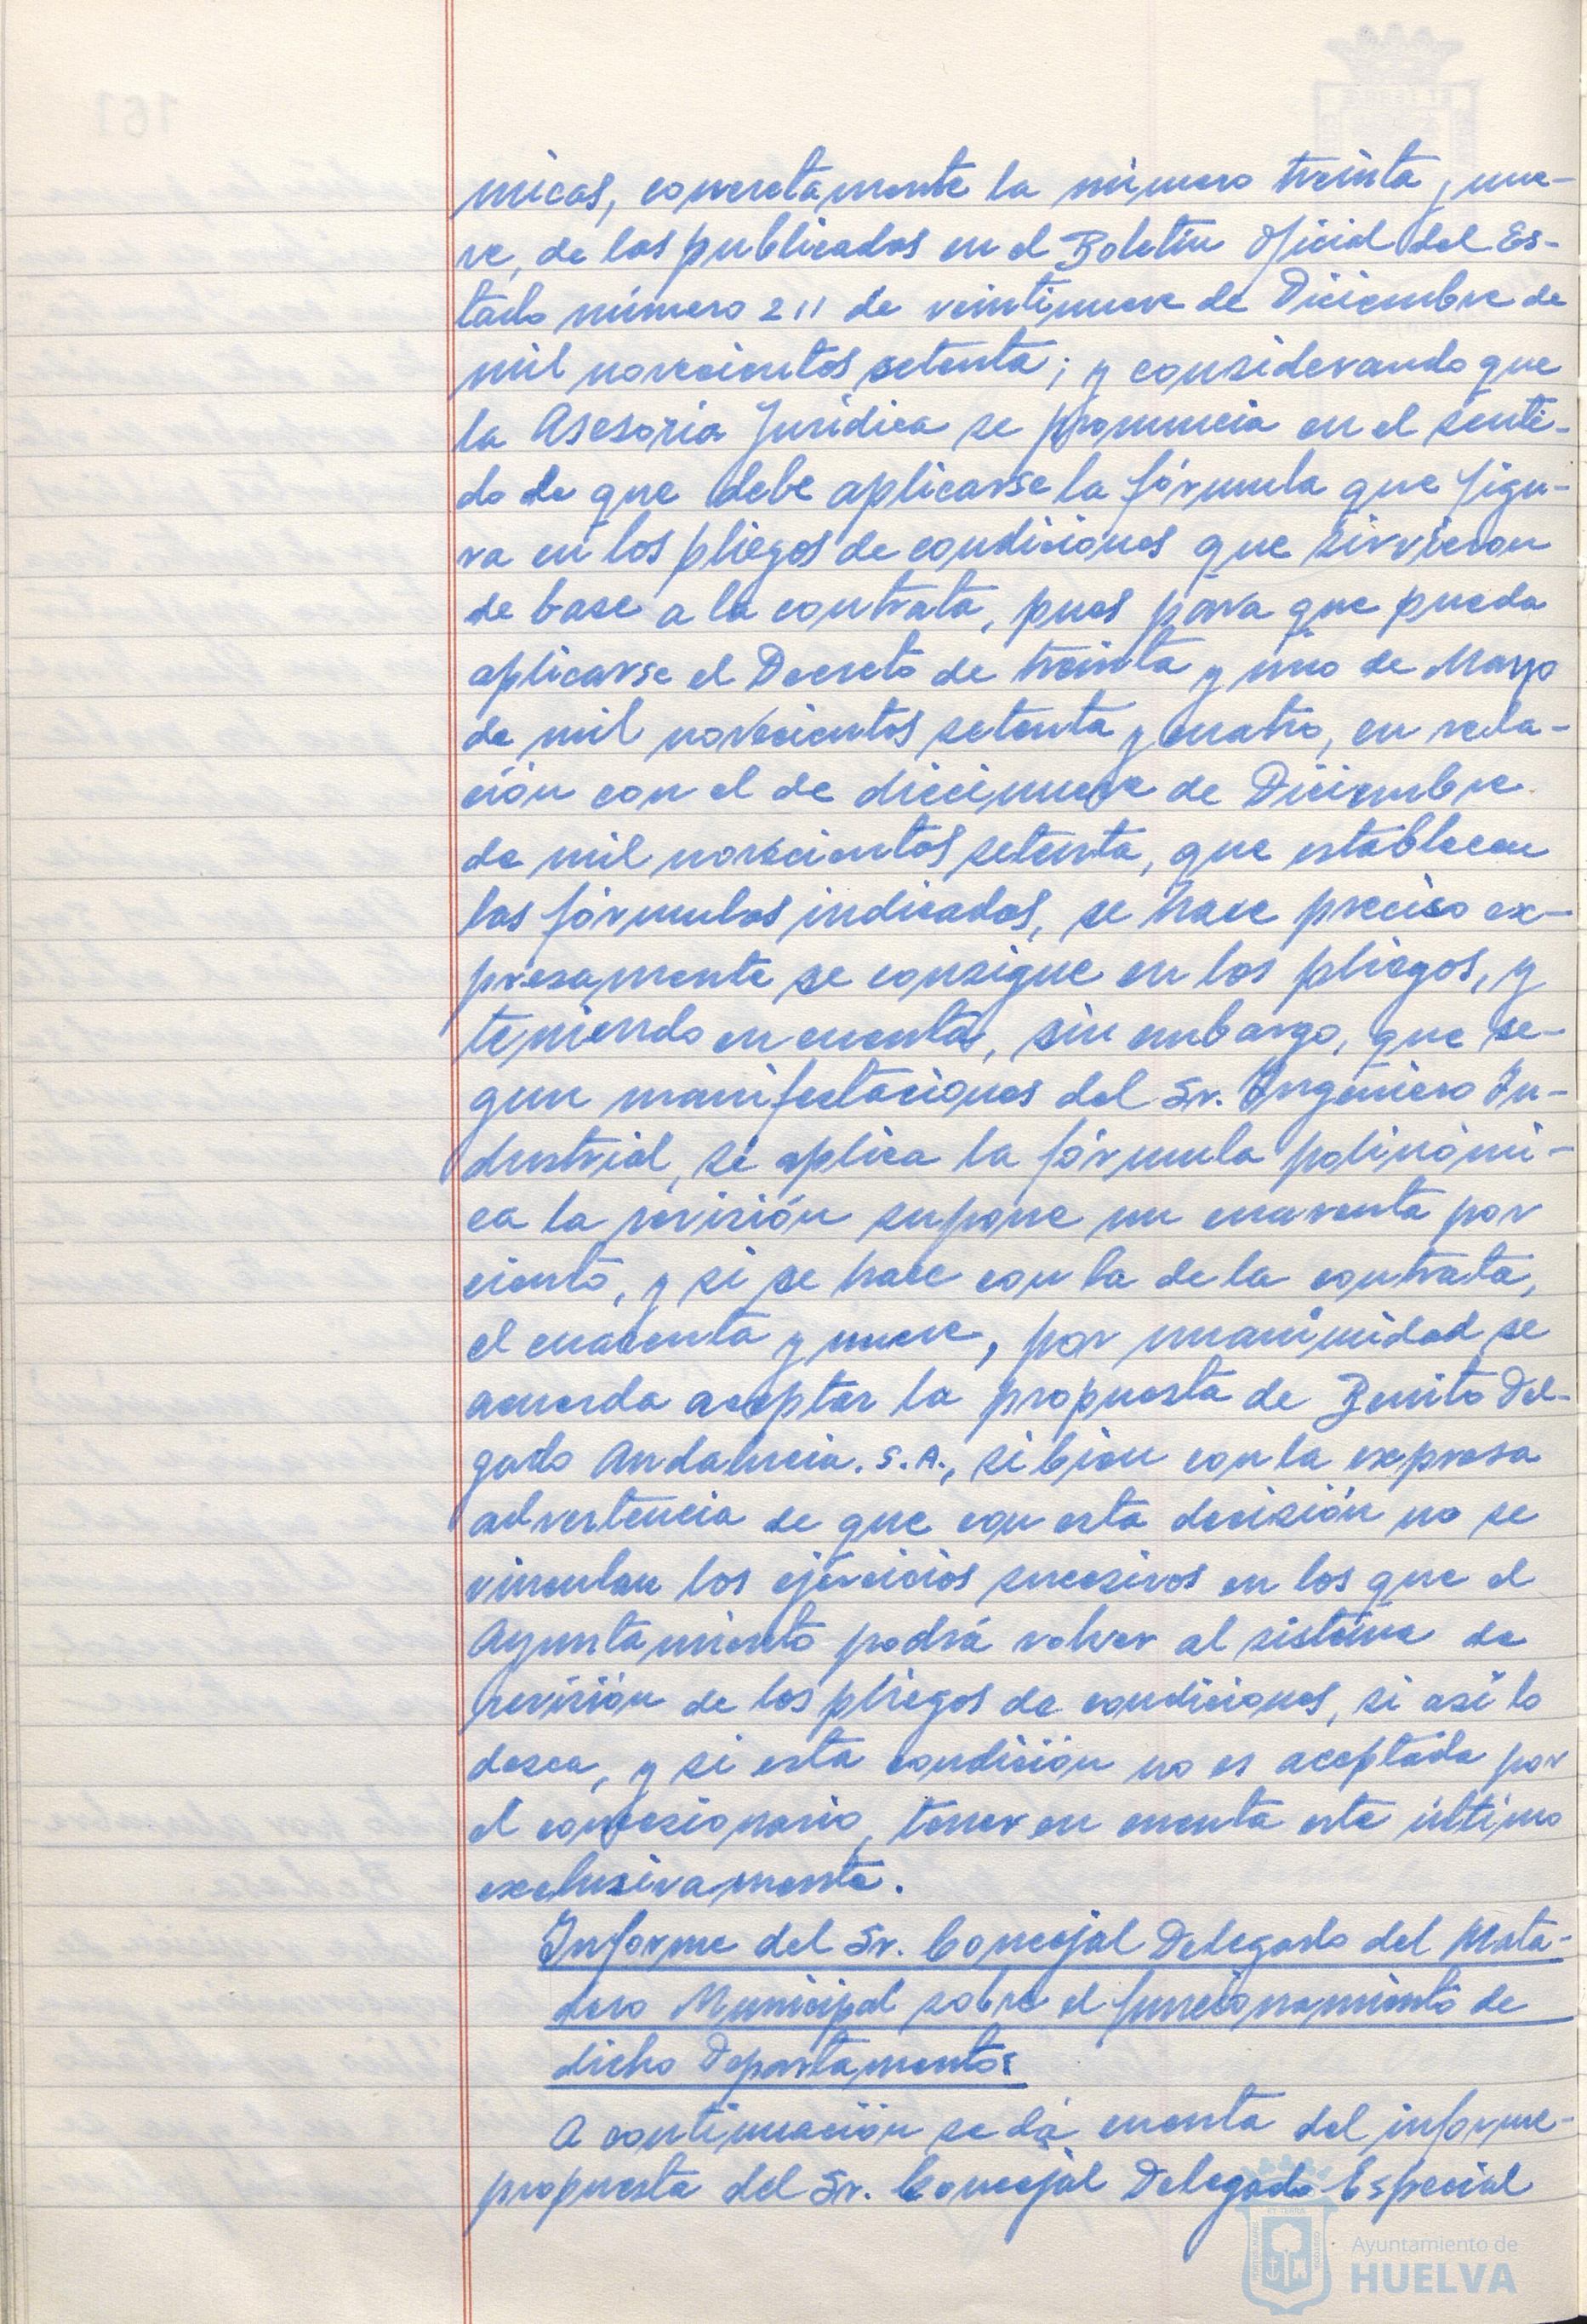 micas, concretamente la número treinta y nue-
ve, de las publicadas en el Boletín Oficial del Es-
tado número 211 de veintinueve de Diciembre de
mil novecientos setenta; y considerando que
la Asesoria Jurídica se pronuncia en el senti-
do de que debe aplicarse la fórmula que figu-
ra en los pliegos de condiciones que sirvieron
de base a la contrata, pues para que pueda
aplicarse el Decreto de treinta y uno de Mayo
de mil novecientos setenta y cuatro, en rela-
ción con el de diecinueve de Diciembre
de mil novecientos setenta, que establecen
las fórmulas indicadas, se hace preciso ex-
presamente se consigue en los pliegos, y
teniendo en cuenta, sin embargo, que se-
gun manifestaciones del Sr. Ingeniero In-
dustrial, si aplica la fórmula polinómi-
ca la revisión supone un cuarenta por
ciento, y si se hace con la de la contrata,
el cuarenta y nueve, por unanimidad se
acuerda aceptar la propuesta de Benito Del-
gado Andalucia. S.A., si bien con la expresa
advertencia de que con esta decisión no se
vinculan los ejercicios sucesivos en los que el
Ayuntamiento podrá volver al sistema de
revisión de los pliegos de condiciones, si así lo
desea, y si esta condición no es aceptada por
el concesionario, tener en cuenta este último
exclusivamente.
Informe del Sr. Concejal Delegado del Mata-
dero Municipal sobre el funcionamiento de
dicho Departamento:
A continuación se dá cuenta del informe-
propuesta del Sr. Concejal Delegado Especial
Ayuntamiento de
HUELVA